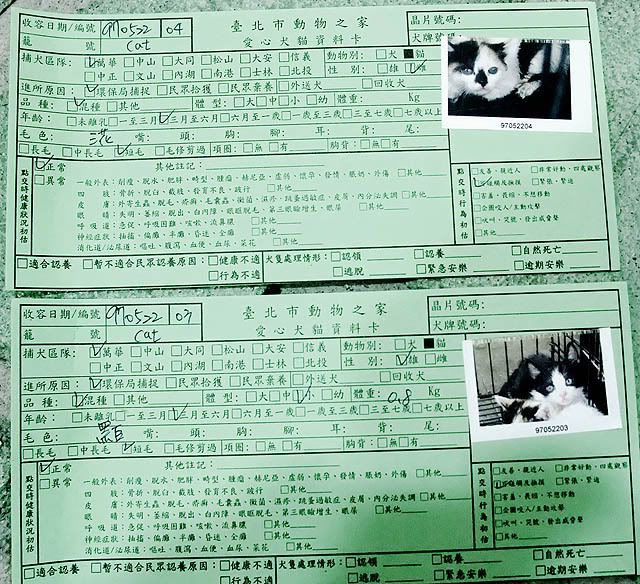 收容日期/編號 970522 04 臺北市動物之家 晶片號碼:
籠 號 cat 愛心犬貓資料卡 犬牌號碼:
捕犬區隊: ☑萬華 □中山 □大同 □松山 □大安 □信義 動物別: □犬 ■貓
□中正 □文山 □內湖 □南港 □士林 □北投 性別: □雄 ☑雌
進所原因: ☑環保局捕捉 □民眾拾獲 □民眾棄養 □外送犬 □回收犬
品種: ☑混種 □其他 體型: □大 □中 □小 □幼 體重: Kg
年齡: □未離乳 □一至三月 ☑三月至六月 □六月至一歲 □一歲至三歲 □三至七歲 □七歲以上
毛色: 花 嘴: 頭: 胸: 腳: 耳: 背: 尾:
□長毛 □中長毛 ☑短毛 □毛修剪過 項圈: □無 □有 胸背: □無 □有
97052204
點交時健康狀況初估
☑正常 其他註記:
□異常 一般外表: 削瘦、脫水、肥胖、畸型、腫瘤、赫尼亞、虛弱、懷孕、發情、脹奶、外傷 □其他
四肢: 骨折、脫臼、截肢、發育不良、跛行 □其他
皮膚: 外寄生蟲、脫毛、疥癬、毛囊蟲、黴菌、濕疹、跳蚤過敏症、皮膚、內分泌失調 □其他
眼睛: 失明、萎縮、脫出、白內障、眼眶脫毛、第三眼瞼增生、眼屎 □其他
呼吸道: 急促、呼吸困難、咳嗽、流鼻膿 □其他
神經症狀: 抽搐、偏癱、半癱、昏迷、全癱 □其他
消化道/泌尿道: 嘔吐、腹瀉、血便、血尿、菜花 □其他
點交時行為初估
□友善、親近人 □非常好動、四處觀察
☑可接觸及撫摸 □緊張、緊迫
□害羞、畏縮、不想移動
□企圖咬人/主動攻擊
□吠叫、哭號、發出威脅聲
□其他
□適合認養 □暫不適合民眾認養原因: □健康不適 犬隻處理情形: □認領 □認養 □自然死亡
□行為不適 □逃脫 □緊急安樂 □逾期安樂
收容日期/編號 970522 03 臺北市動物之家 晶片號碼:
籠 號 cat 愛心犬貓資料卡 犬牌號碼:
捕犬區隊: ☑萬華 □中山 □大同 □松山 □大安 □信義 動物別: □犬 ■貓
□中正 □文山 □內湖 □南港 □士林 □北投 性別: ☑雄 □雌
進所原因: ☑環保局捕捉 □民眾拾獲 □民眾棄養 □外送犬 □回收犬
品種: ☑混種 □其他 體型: □大 □中 ☑小 □幼 體重: 0.8 Kg
年齡: □未離乳 □一至三月 ☑三月至六月 □六月至一歲 □一歲至三歲 □三至七歲 □七歲以上
毛色: 嘴: 頭: 胸: 腳: 耳: 背: 尾:
□長毛 □中長毛 ☑短毛 □毛修剪過 項圈: □無 □有 胸背: □無 □有
97052203
點交時健康狀況初估
☑正常 其他註記:
□異常 一般外表: 削瘦、脫水、肥胖、畸型、腫瘤、赫尼亞、虛弱、懷孕、發情、脹奶、外傷 □其他
四肢: 骨折、脫臼、截肢、發育不良、跛行 □其他
皮膚: 外寄生蟲、脫毛、疥癬、毛囊蟲、黴菌、濕疹、跳蚤過敏症、皮膚、內分泌失調 □其他
眼睛: 失明、萎縮、脫出、白內障、眼眶脫毛、第三眼瞼增生、眼屎 □其他
呼吸道: 急促、呼吸困難、咳嗽、流鼻膿 □其他
神經症狀: 抽搐、偏癱、半癱、昏迷、全癱 □其他
消化道/泌尿道: 嘔吐、腹瀉、血便、血尿、菜花 □其他
點交時行為初估
□友善、親近人 □非常好動、四處觀察
☑可接觸及撫摸 □緊張、緊迫
□害羞、畏縮、不想移動
□企圖咬人/主動攻擊
□吠叫、哭號、發出威脅聲
□其他
□適合認養 □暫不適合民眾認養原因: □健康不適 犬隻處理情形: □認領 □認養 □自然死亡
□行為不適 □逃脫 □緊急安樂 □逾期安樂